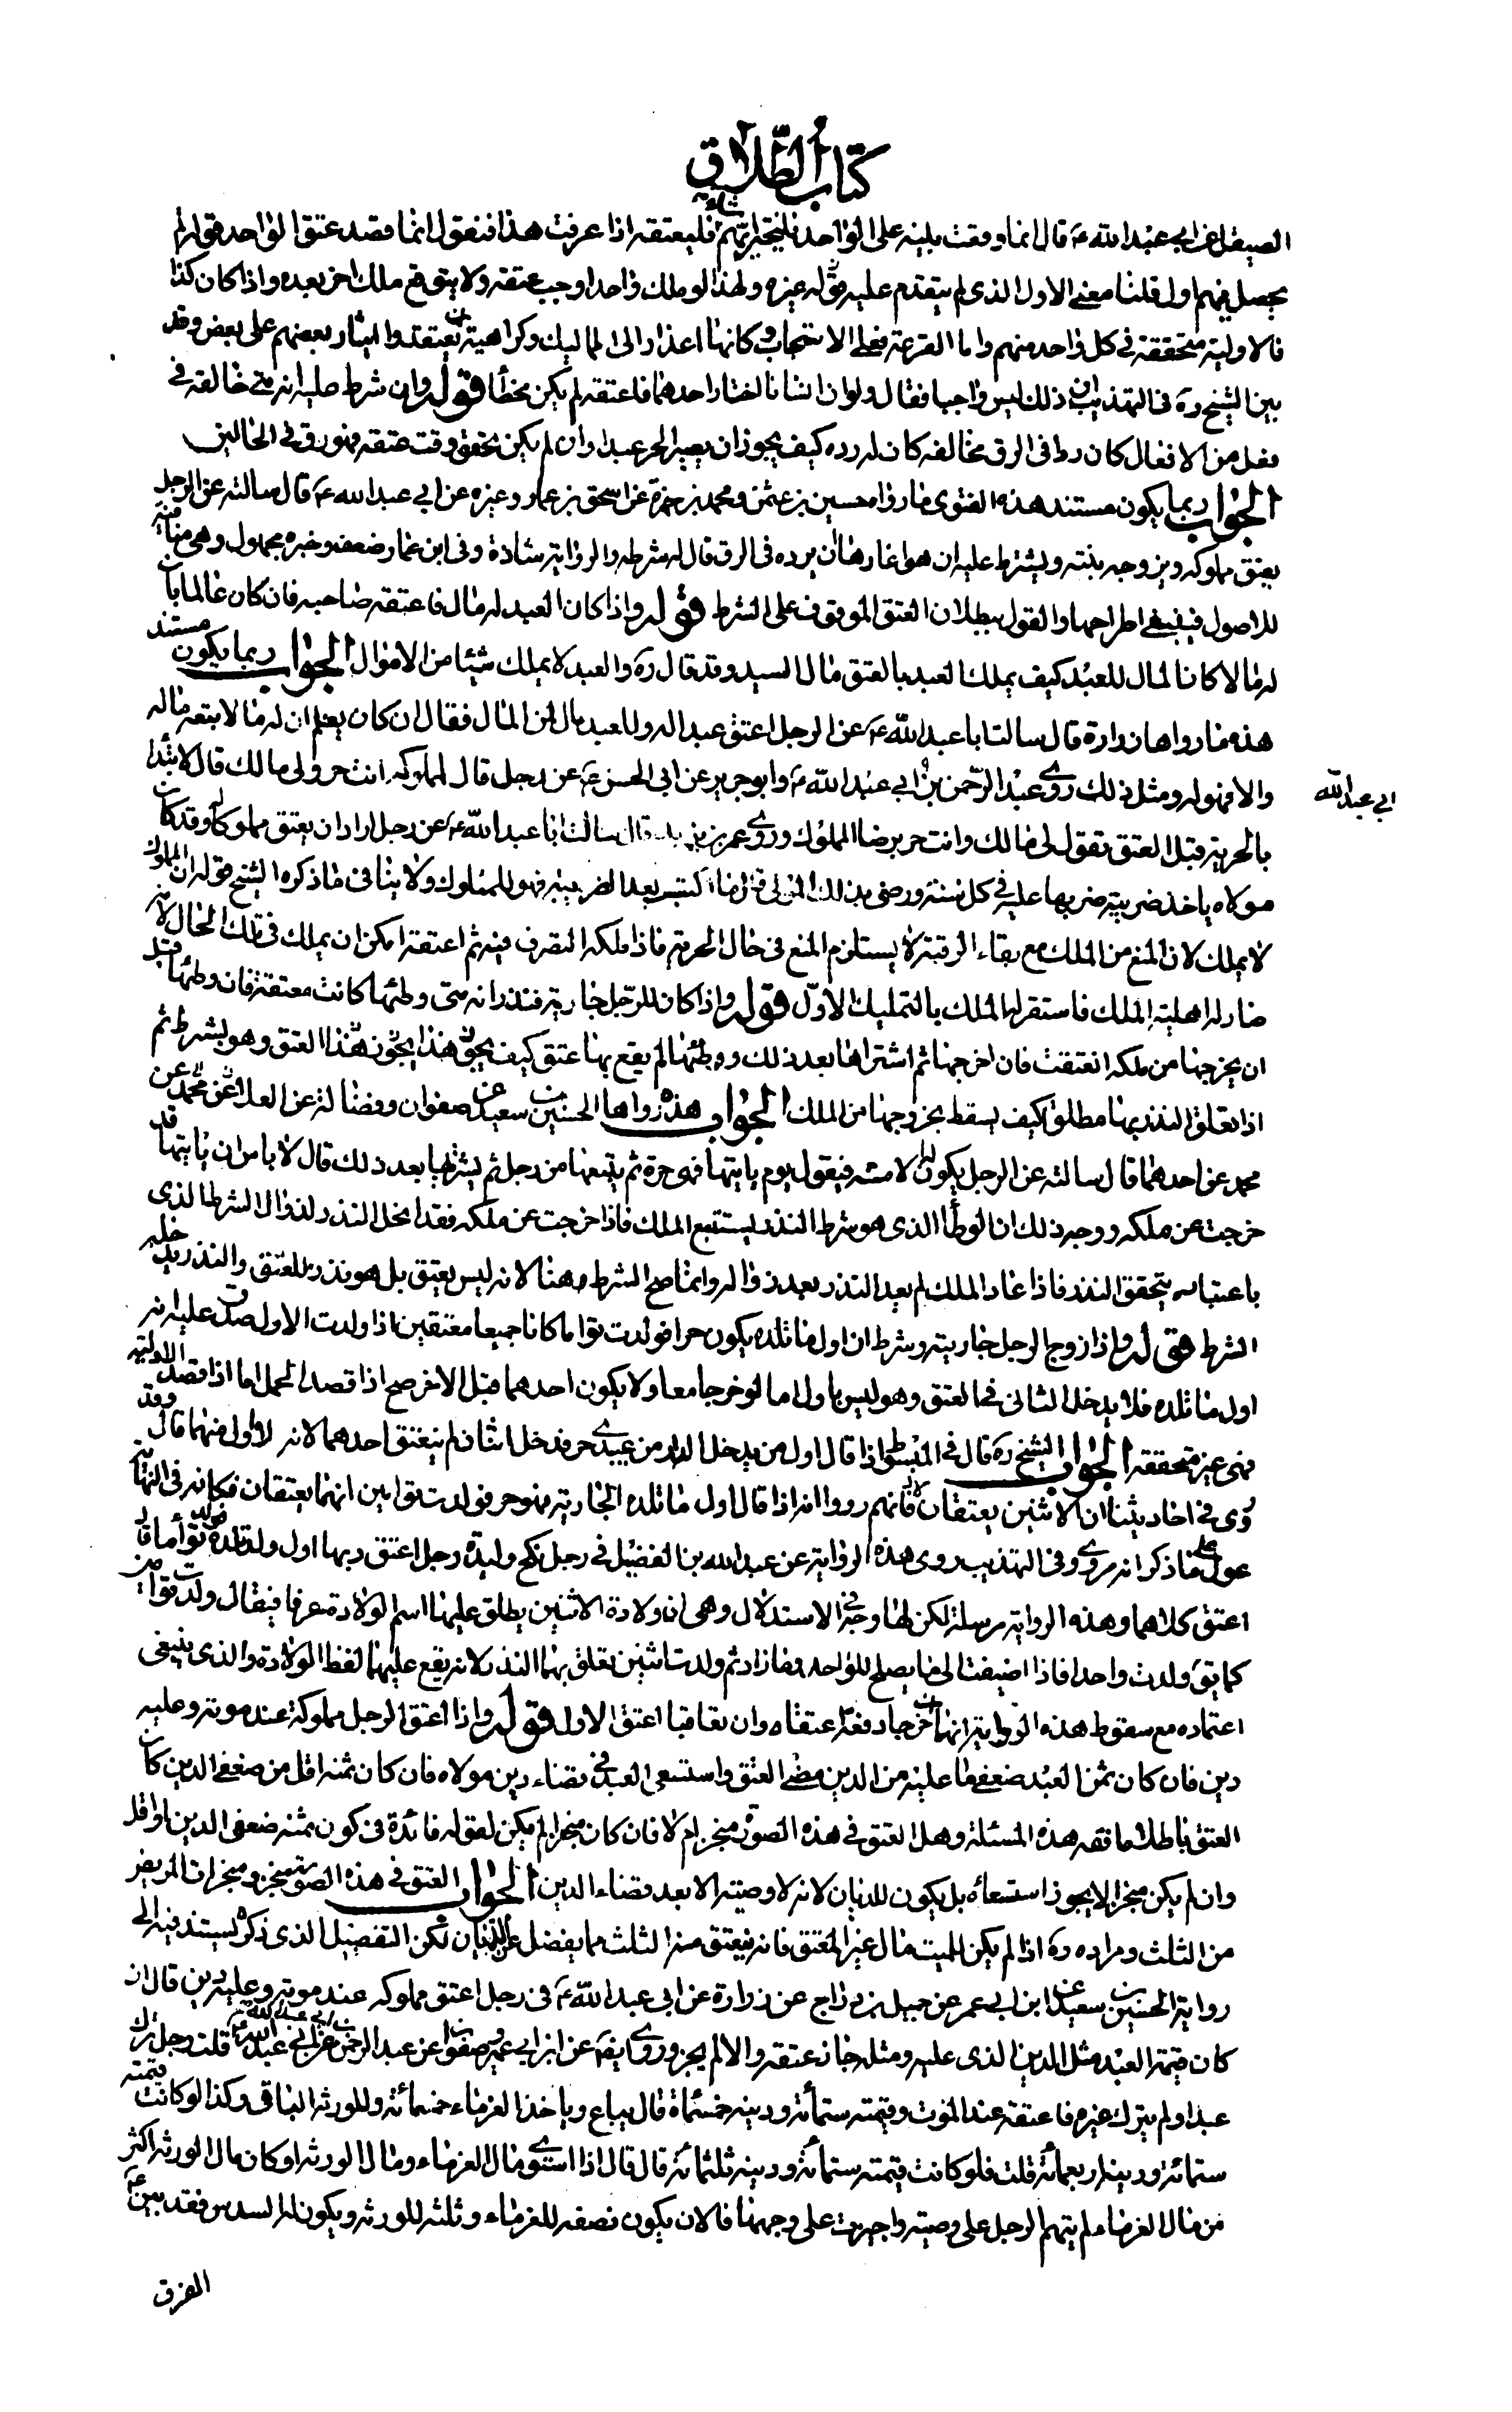 كتاب الطلاق
الصيقل عن ابي عبد الله ع قال انما وقعت بليته على الواحد فليختر ايهم شاء فليعتقه اذا عرفت هذا فنقول انما قصد عتق الواحد فقوله لم
يحصل فيهم اول قلنا معنى الاول الذي لم يتقدم عليه قوله غيره ولهذا لو ملك واحدا وجب عتقه ولا يتوقع ملك اخر بعده واذا كان كذا
فالاولية متحققة في كل واحد منهم واما القرعة فعلى الاستحباب وكانها اعذار الى المماليك وكراهية ان يعتقد وايثار بعضهم على بعض وقد
بين الشيخ ره في التهذيب ان ذلك ليس واجبا فقال ولو ان انسانا اختار احدهما فاعتقه لم يكن مخطأ قوله وان شرط عليه انه متى خالفه في
فعل من الافعال كان ردا في الرق فخالفه كان له رده كيف يجوز ان يصير الحر عبدا وان لم يكن تحقق وقت عتقه فهو رق في الحالين
الجواب ربما يكون مستند هذه الفتوى ما رواه حسين بن عثمن ومحمد بن حمزة عن اسحق بن عمار وغيره عن ابي عبد الله ع قال سالته عن الرجل
يعتق مملوكه ويزوجه بنته ويشترط عليه ان هو اغارها ان يرده في الرق قال له شرطه والرواية شاذة وفي ابن عمار ضعف وخبره مجهول وهي منافية
للاصول فينبغي اطراحها والقول ببطلان العتق الموقوف على الشرط قوله واذا كان العبد له مال فاعتقه صاحبه فان كان عالما بان
له مالا كان المال للعبد كيف يملك العبد بالعتق مال السيد وقد قال ره والعبد لا يملك شيئا من الاموال الجواب ربما يكون مستند
هذه ما رواها زرارة قال سالت ابا عبد الله ع عن الرجل اعتق عبدا له وللعبد مال لمن المال فقال ان كان يعلم ان له مالا تبعه ماله
والا فهو له ومثل ذلك روى عبد الرحمن بن ابي عبد الله ع وابو جرير عن ابي الحسن ع عن رجل قال لمملوكه انت حر ولي مالك قال لا يبدا
ابي عبد الله
بالحرية قبل العتق يقول لي مالك وانت حر برضا المملوك وروى عمر بن يزيد قال سالت ابا عبد الله ع عن رجل اراد ان يعتق مملوكا له وقد كان
مولاه ياخذ ضريبة ضربها عليه في كل سنة ورضي بذلك المولى فما اكتسب بعد الضريبة فهو للمملوك ولا ينافي ما ذكره الشيخ قوله ان المملوك
لا يملك لان المنع من الملك مع بقاء الرقبة لا يستلزم المنع في حال الحرية فاذا ملكه التصرف فيه ثم اعتقه امكن ان يملك في تلك الحال لانه
صار له اهلية الملك فاستقر له الملك بالتمليك الاول قوله واذا كان للرجل جارية فنذر انه متى وطئها كانت معتقة فان وطئها قبل
ان يخرجها من ملكه انعتقت فان اخرجها ثم اشتراها بعد ذلك ووطئها لم يقع بها عتق كيف يجوز هذا العتق وهو بشرط ثم
اذا تعلق النذر بها مطلقا كيف يسقط بخروجها من الملك الجواب هذه رواها الحسين بن سعيد عن صفوان وفضالة عن العلا عن محمد عن
محمد عن احدهما قال سالته عن الرجل يكون له الامة فيقول يوم ياتيها فهي حرة ثم يبيعها من رجل ثم يشتريها بعد ذلك قال لا باس ان ياتيها قد
خرجت عن ملكه ووجه ذلك ان الوطأ الذي هو شرط النذر يستتبع الملك فاذا خرجت عن ملكه فقد انحل النذر لزوال الشرط الذي
باعتباره يتحقق النذر فاذا عاد الملك لم يعد النذر بعد زواله وانما صح الشرط هنا لانه ليس يعتق بل هو نذر للعتق والنذر يدخله
الشرط قوله واذا زوج الرجل جاريته وشرط ان اول ما تلده يكون حرا فولدت تواما كانا جميعا معتقين اذا ولدت الاول صدق عليه انه
اول ما تلده فلا يدخل الثاني في العتق وهو ليس باول اما لو خرجا معا ولا يكون احدهما قبل الاخر صح اذا قصد الحمل اما اذا قصد الاولية
فهي غير متحققه الجواب الشيخ ره قال في المبسوط اذا قال اول من يدخل الدار من عبيدي حر فدخل اثنان لم ينعتق احدهما لانه لا اول منهما قال وقد
روي في احاديثنا ان الاثنين يعتقان لانهم رووا انه اذا قال اول ما تلده الجارية فهو حر فولدت توامين انهما يعتقان فكانه في النهاية
عول على ما ذكر انه مروي وفي التهذيب روى هذه الرواية عن عبد الله بن الفضيل في رجل نكح وليدة رجل اعتق ربها اول ولد تلده فولدت توأما قال
اعتق كلاهما وهذه الرواية مرسلة لكن لها وجه في الاستدلال وهي ان ولادة الاثنين يطلق عليها اسم الولادة عرفا فيقال ولدت توامين
كما يق ولدت واحدا فاذا اضيفت الى ما يصلح للواحد فما زاد ثم ولدت اثنين تعلق بهما النذر لانه يقع عليهما لفظ الولادة والذي ينبغي
اعتماده مع سقوط هذه الرواية انهما ان خرجا دفعة عتقا وان تعاقبا اعتق الاول قوله واذا اعتق الرجل مملوكه عند موته وعليه
دين فان كان ثمن العبد ضعفي ما عليه من الدين مضى العتق واستسعى العبد في قضاء دين مولاه فان كان ثمنه اقل من ضعفي الدين كان
العتق باطلا ما فقه هذه المسئلة وهل العتق في هذه الصورة منجز ام لا فان كان منجزا لم يكن لقوله فائدة في كون ثمنه ضعفي الدين او اقل
وان لم يكن منجزا لا يجوز استسعاه بل يكون للديان لانه لا وصية الا بعد قضاء الدين الجواب العتق في هذه الصورة منجز ومنجزات المريض
من الثلث ومراده ره اذا لم يكن للميت مال غير المعتق فانه ينعتق منه الثلث مما يفضل عن الديان لكن التفصيل الذي ذكره يستند فيه الى
رواية الحسين بن سعيد عن ابن ابي عمير عن جميل بن دراج عن زرارة عن ابي عبد الله ع في رجل اعتق مملوكه عند موته وعليه دين قال ان
كان قيمة العبد مثل الدين الذي عليه ومثله جاز عتقه والا لم يجز وروى ايضا عن ابن ابي عمير وصفوان عن عبد الرحمن عن ابي عبد الله ع قلت رجل ترك
عبدا ولم يترك غيره فاعتقه عند الموت وقيمته ستمائة ودينه خمسمائة قال يباع وياخذ الغرماء خمسمائة وللورثة الباقي وكذا لو كانت قيمته
ستمائة ودينه اربعمائة قلت فلو كانت قيمته ستمائة ودينه ثلثمائة قال قال اذا استوى مال الغرماء ومال الورثة او كان مال الورثة اكثر
من مال الغرماء لم يتهم الرجل على وصيته واجيزت على وجهها فالان يكون نصفه للغرماء وثلثه للورثة ويكون له السدس فقد بين ع
الفرق